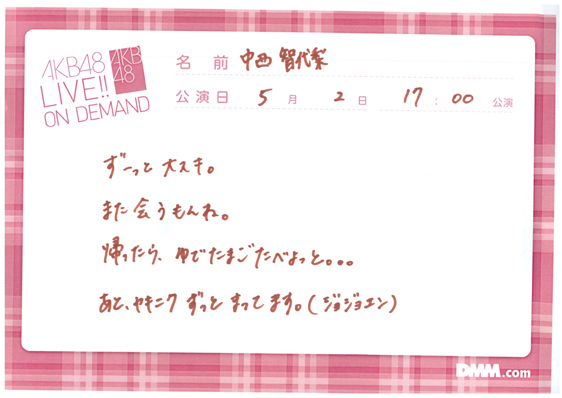 AKB48
LIVE!!
ON DEMAND
AKB
48
名前 中西 智代梨
公演日 5月 2日 17:00 公演
ずーっと 大スキ。
また 会うもんね。
帰ったら、ゆでたまごたべよっと。。。
あと、ヤキニク ずっと まってます。(ジョジョエン)
DMM.com